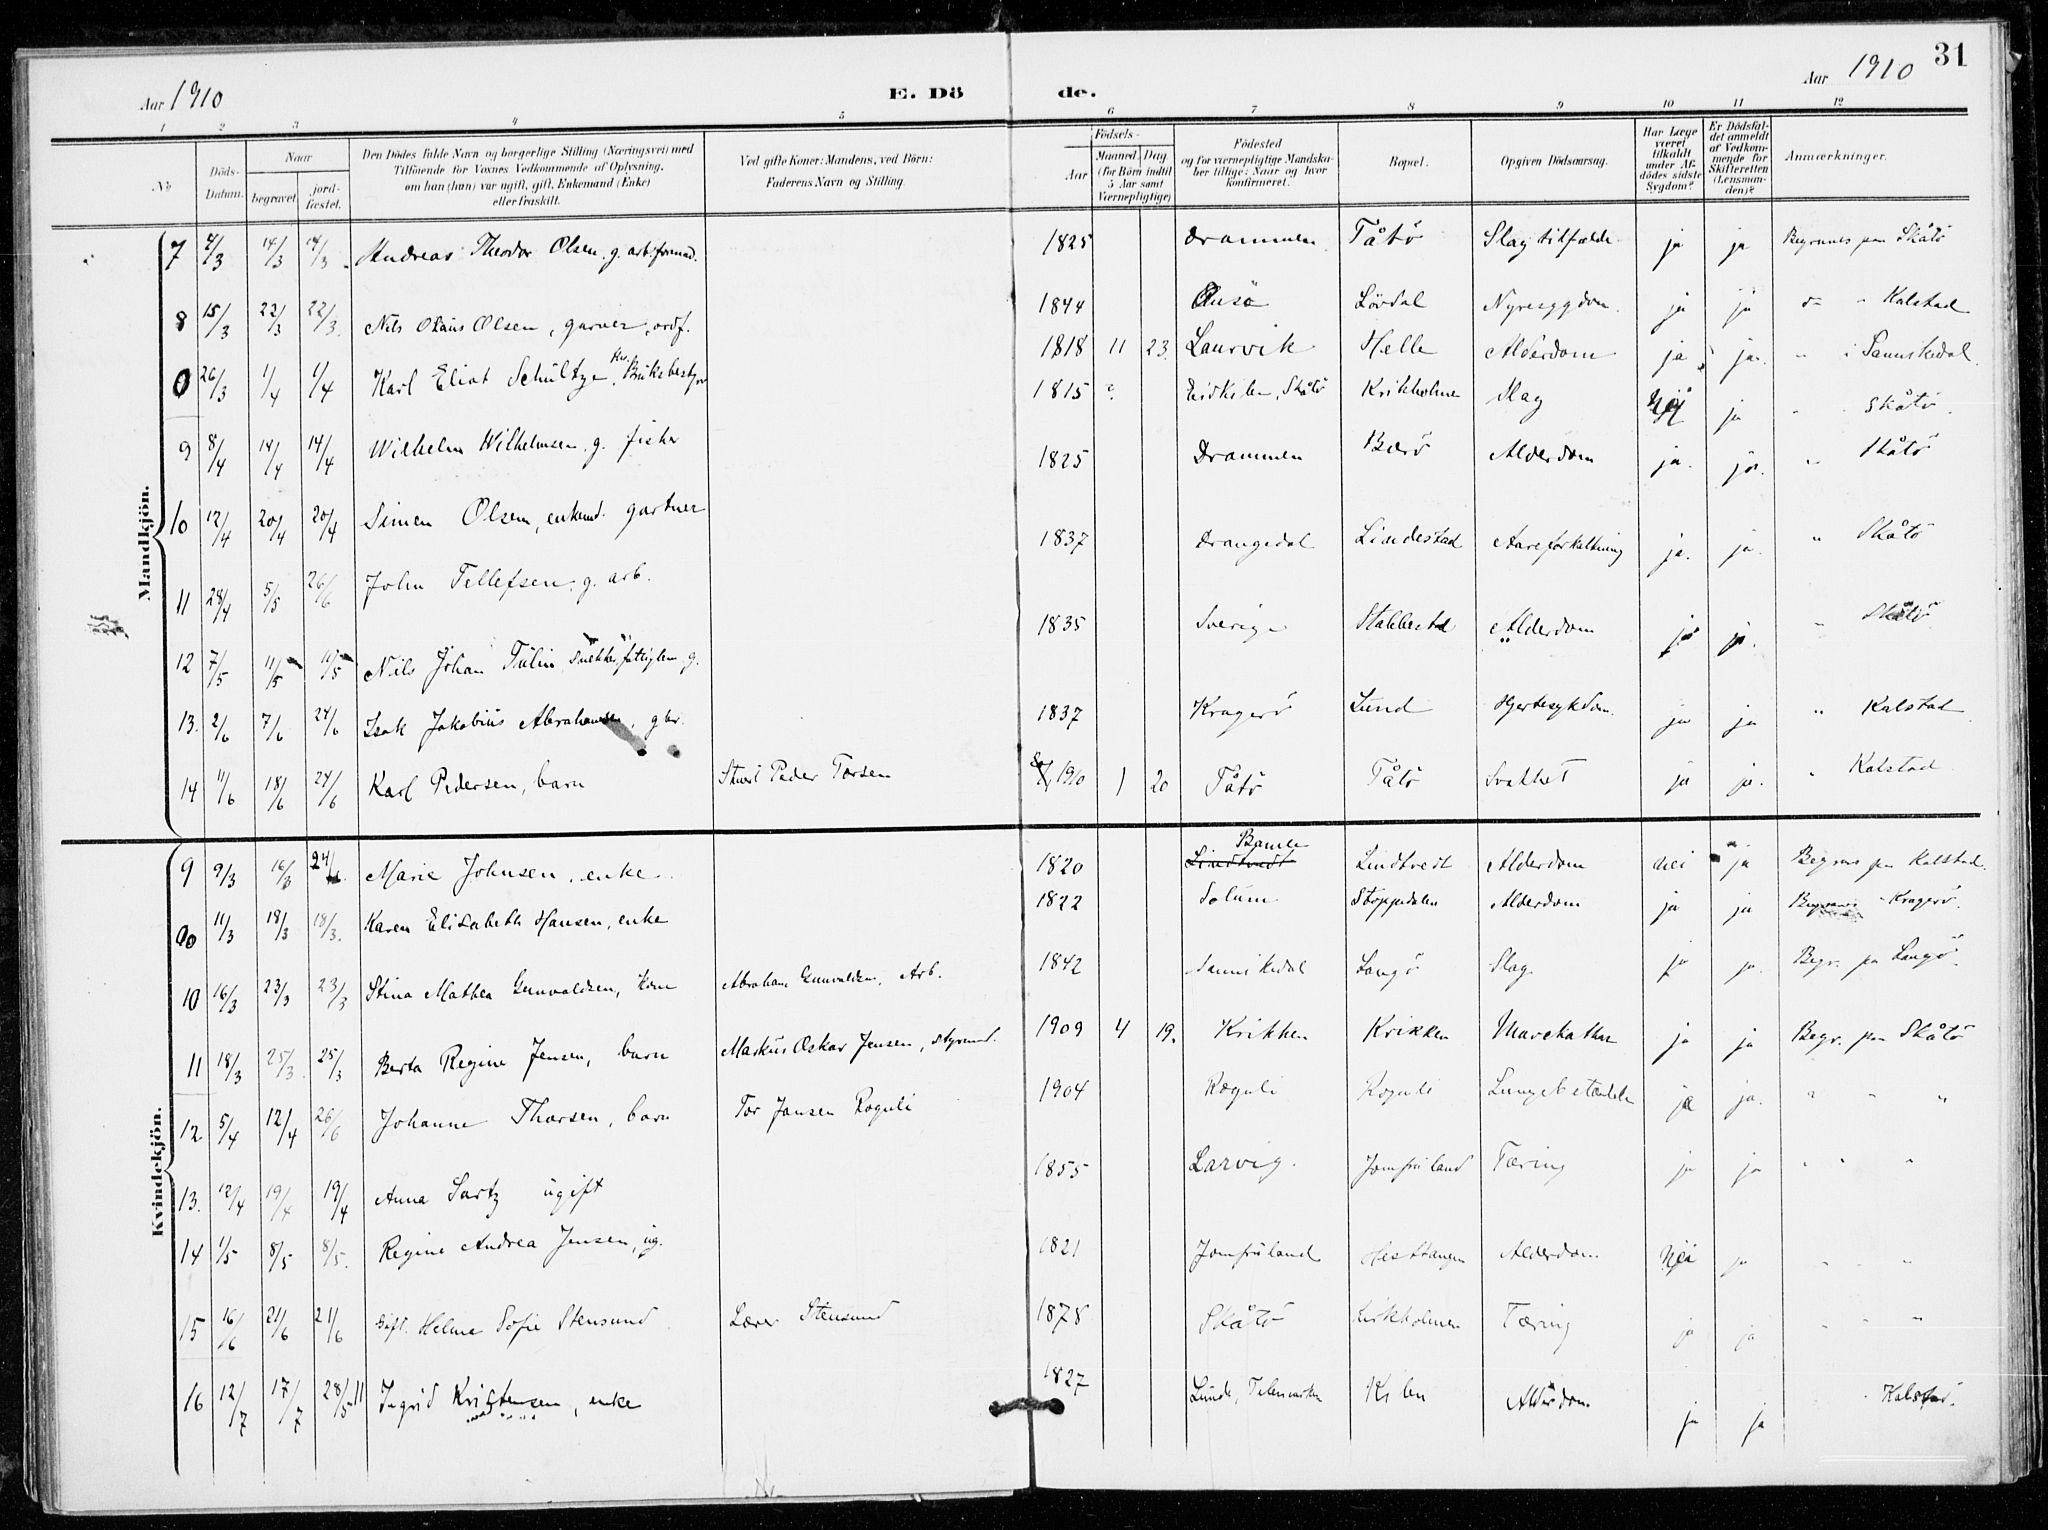 Aar 1910
E. Dö de.
Aar 1910
31
1 2 3 4 5 6 7 8 9 10 11 12
No
Döds-Datum.
Naar
begravet.
jord-fæstet.
Den Dödes fulde Navn og borgerlige Stilling (Næringsvei) med
Tilföiende for Voxnes Vedkommende af Oplysning,
om han (hun) var ugift, gift, Enkemand (Enke)
eller fraskilt.
Ved gifte Koner: Mandens, ved Börn:
Faderens Navn og Stilling.
Födsels-
Aar
Maaned. Dag
(for Börn indtil
5 Aar samt
Værnepligtige)
Födested
og for værnepligtige Mandska-
ber tillige: Naar og hvor
konfirmeret.
Bopæl.
Opgiven Dödsaarsag.
Har Læge
været
tilkaldt
under Af-
dödes sidste
Sygdom?
Er Dödsfal-
det anmeldt
af Vedkom-
mende for
Skifteretten
(Lensman-
den)?
Anmærkninger.
Mandkjön.
7 14/3 14/3 Andreas Theodor Olsen, g. arb. formd. 1825 Drammen Tåtö Slagtilfælde ja ja Skåtö
8 15/3 22/3 22/3. Nils Olaus Olsen, garver, ordf. 1844 Lövdal Nyresygdom. ja ja Kalstad
0 26/3 1/4 1/4 Karl Eliot Schultze, 1818 11 23. Laurvik Helle Alderdom ja ja. " i Sannikedal.
9 8/4 14/4 14/4 Wilhelm Wilhelmsen. g. fisker 1815 Eidkilen, Skåtö Krikholmen Slag Nej ja " Skåtö.
10 12/4 20/4 20/4 Simen Olsen, enkemd. gartner 1825 Drammen Bærö Alderdom ja. ja. " Skåtö
11 28/4 5/5 26/6 John Tellefsen, g. arb. 1837 Drangedal Lindestad Aareforkalkning ja. ja. " Skåtö
12 7/5 11/5 11/5 Nils Johan Tulin g. 1835 Sverige Stabbestad Alderdom ja ja. " Skåtö
13. 2/6 7/6 24/6 Isak Jakobius Abrahamsen, gbr. 1837 Kragerö Lund Hjertesykdom. ja ja " Kalstad
14 11/6 18/6 24/6 Karl Pedersen, barn Peder Torsen 1910 1 20 Tåtö Tåtö Svakhet ja ja. " Kalstad
Kvindekjön.
9 9/3 16/3 24/6 Marie Johnsen, enke 1820 Lindtvedt Bamle Lindtvedt Alderdom nei ja Begraves paa Kalstad.
11/3 18/3 18/3. Karen Elisabeth Hansen, enke 1822 Solum Stoppedalen Alderdom ja ja Kragerö.
10 16/3 23/3 23/3 Stina Mathea Gunvaldsen, kone Abraham Gunvaldsen, Arb. 1842 Sannikedal Langö Slag ja ja. Begr. paa Langö.
11 18/3 25/3. 25/3 Berta Regine Jensen, barn Markus Oskar Jensen, styrmd. 1909 4 19. Krikken Krikken ja ja Begr. paa Skåtö
12 5/4 12/4 26/6 Johanne Thorsen, barn Tor Jensen Roguli 1904 Roguli Roguli ja ja. " " "
13. 12/4 19/4 19/4 Anna Sartz ugift 1855 Larvig. Jomfruland Tæring ja ja " " "
14 1/5 8/5 8/5. Regine Andrea Jensen, ug. 1821 Jomfruland Hesttangen Alderdom Nei ja " " "
15 16/6 21/6 21/6 Gift. Helene Sofie Stensund Lærer Stensund 1878 Skåtö Krikholmen Tæring ja ja " " "
16 12/7 17/7 28/5 11 Ingrid Kristensen, enke 1827 Lunde, Telemarken Kilen Alderdom ja ja " Kalstad.